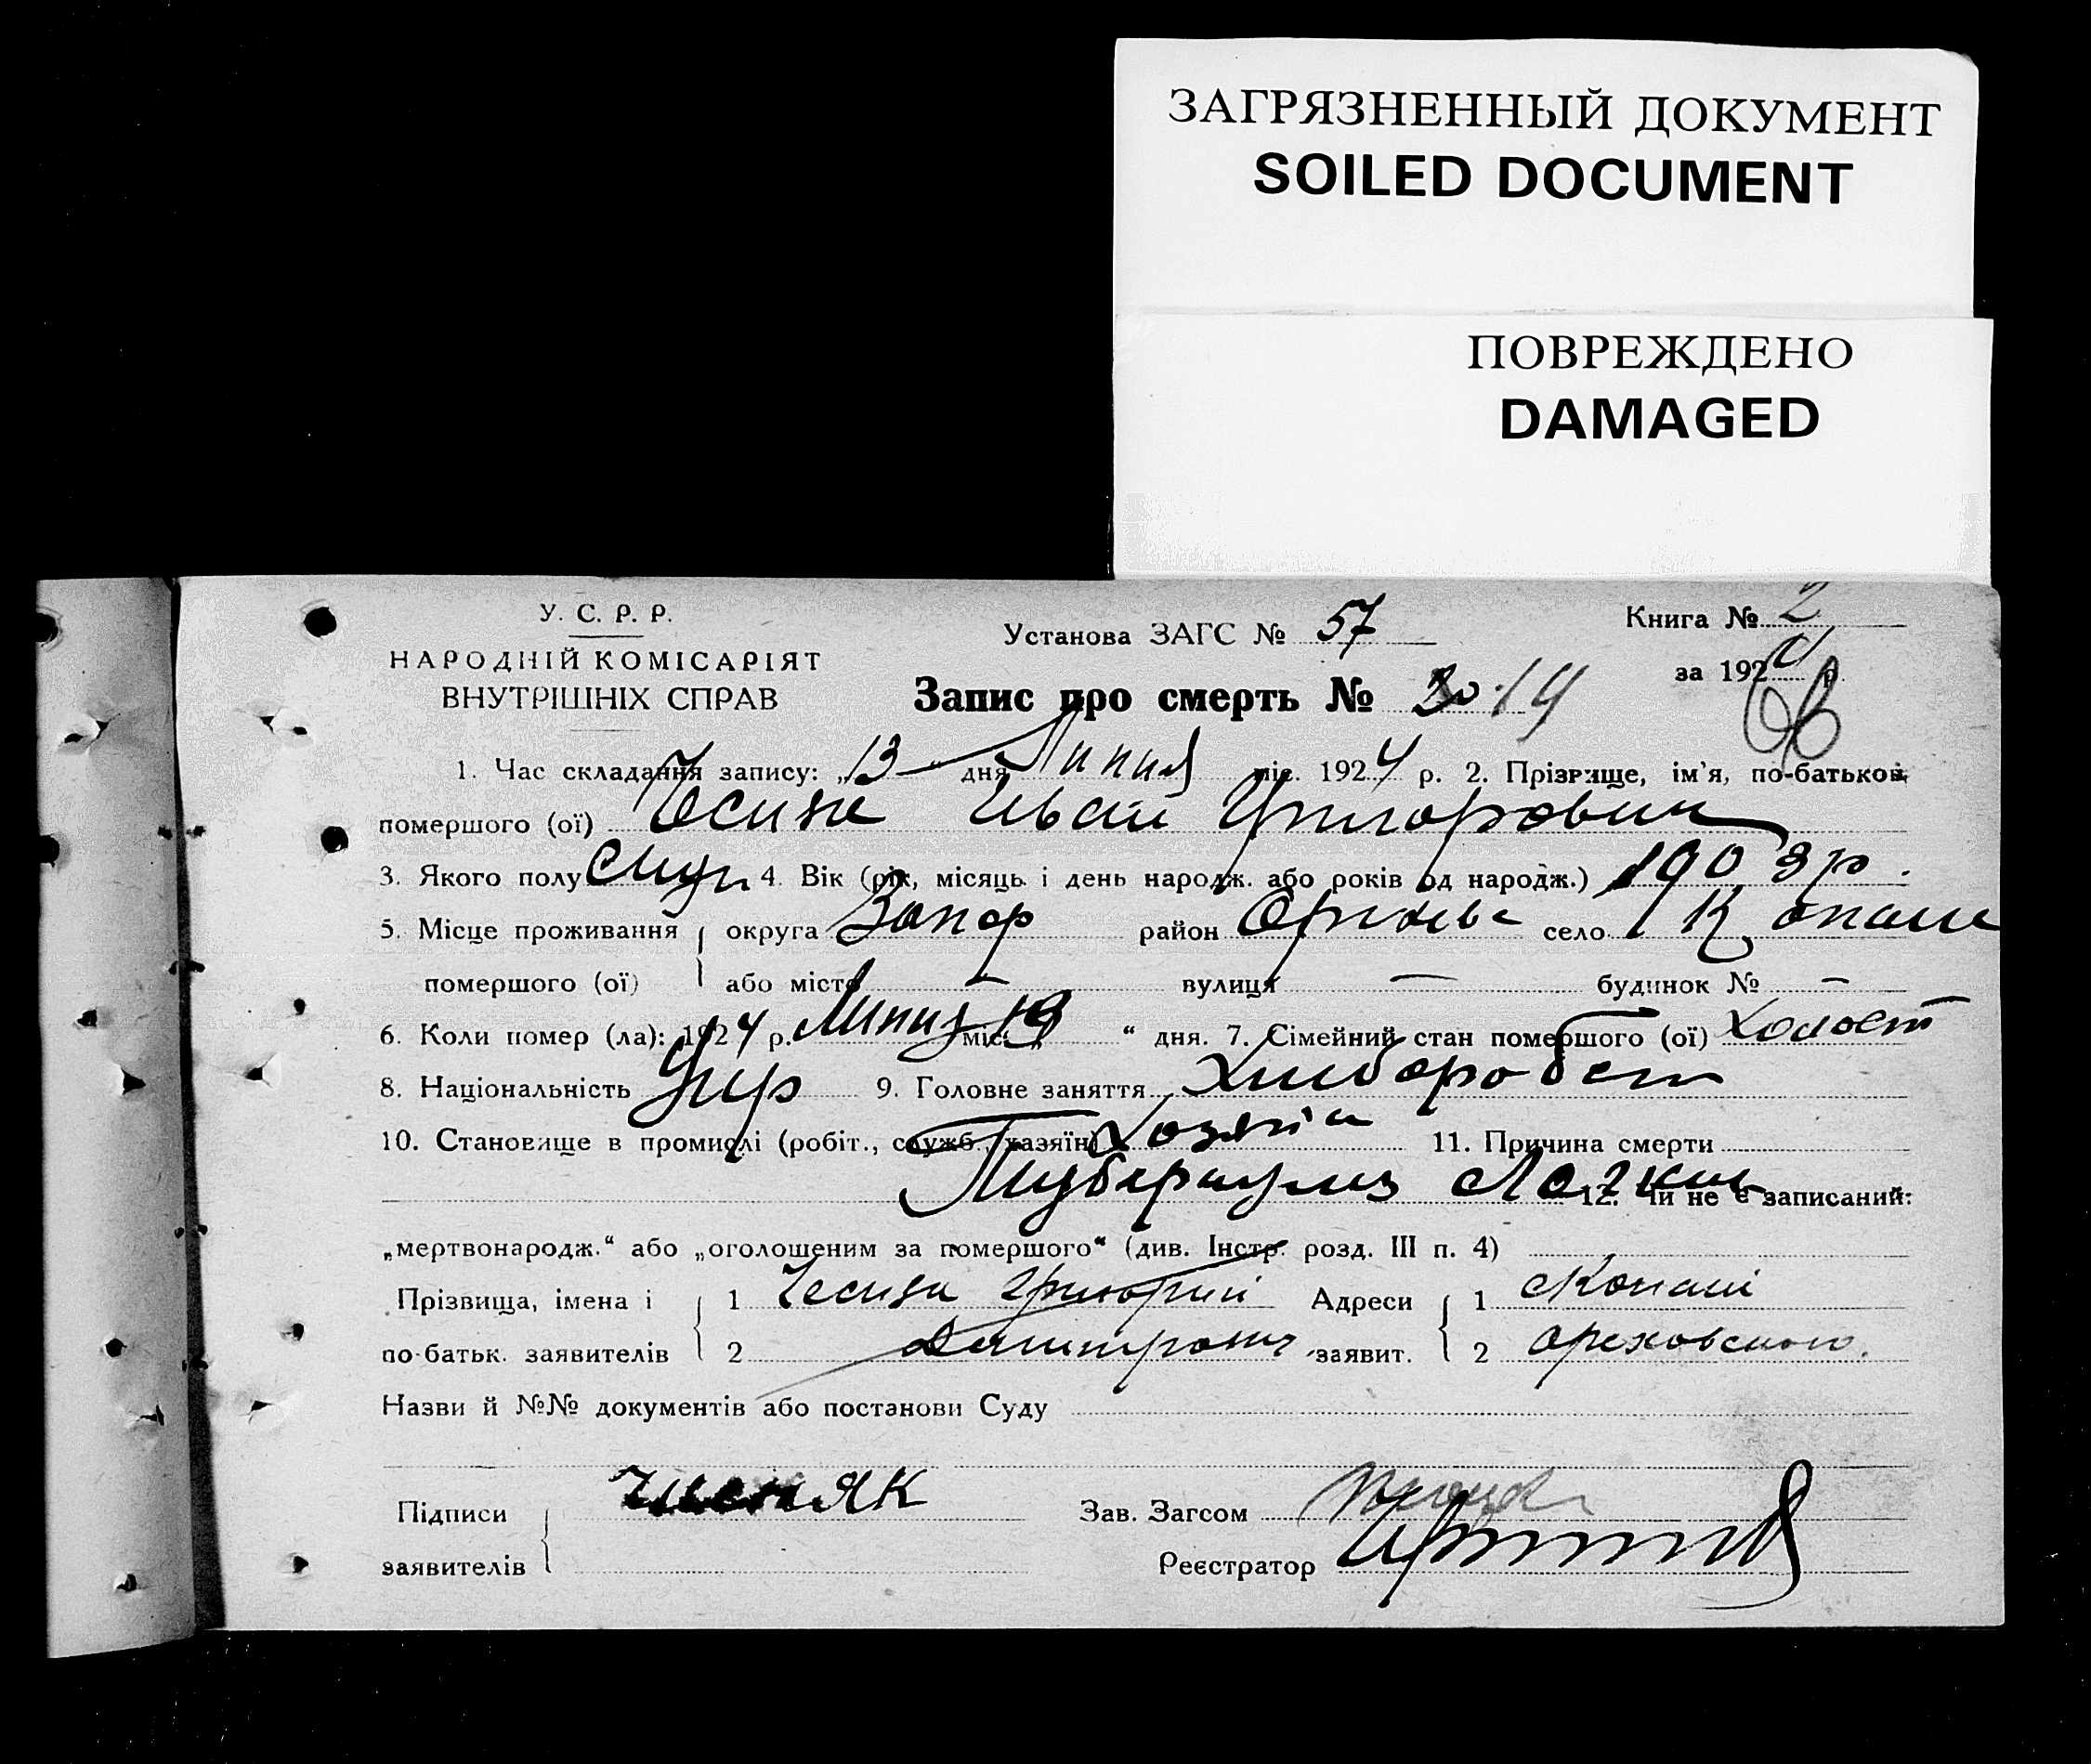 ЗАГРЯЗНЕННЫЙ ДОКУМЕНТ
SOILED DOCUMENT
ПОВРЕЖДЕНО
DAMAGED
У. С. Р. Р.
НАРОДНІЙ КОМІСАРІЯТ
ВНУТРІШНІХ СПРАВ
Установа ЗАГС № 57
Книга № 2
за 192 р.
Запис про смерть № 14
1. Час складання запису: „13“ дня Липня міс. 1924 р. 2. Прізвище, ім'я, по-батькові
помершого (ої) Іван Григорович
3. Якого полу 4. Вік (рік, місяць і день народж. або років од народж.) 1903 р.
5. Місце проживання округа Запор район Оріхів село Копані
помершого (ої) або місто — вулиця — будинок № —
6. Коли помер (ла): 1924 р. Липня міс. „ “ дня. 7. Сімейний стан помершого (ої) Холост
8. Національність Укр 9. Головне заняття Хлібороб
10. Становище в промислі (робіт., служб., хазяїн) Хозяїн 11. Причина смерти
Туберкульоз Лёгких 12. Чи не є записаний:
„мертвонародж.“ або „оголошеним за помершого“ (див. Інстр. розд. III п. 4)
Прізвища, імена і 1 Григорий Адреси 1 с Копані
по-батьк. заявителів 2 Дмитрович заявит. 2 Ореховского.
Назви й №№ документів або постанови Суду
Підписи Зав. Загсом
заявителів Реєстратор